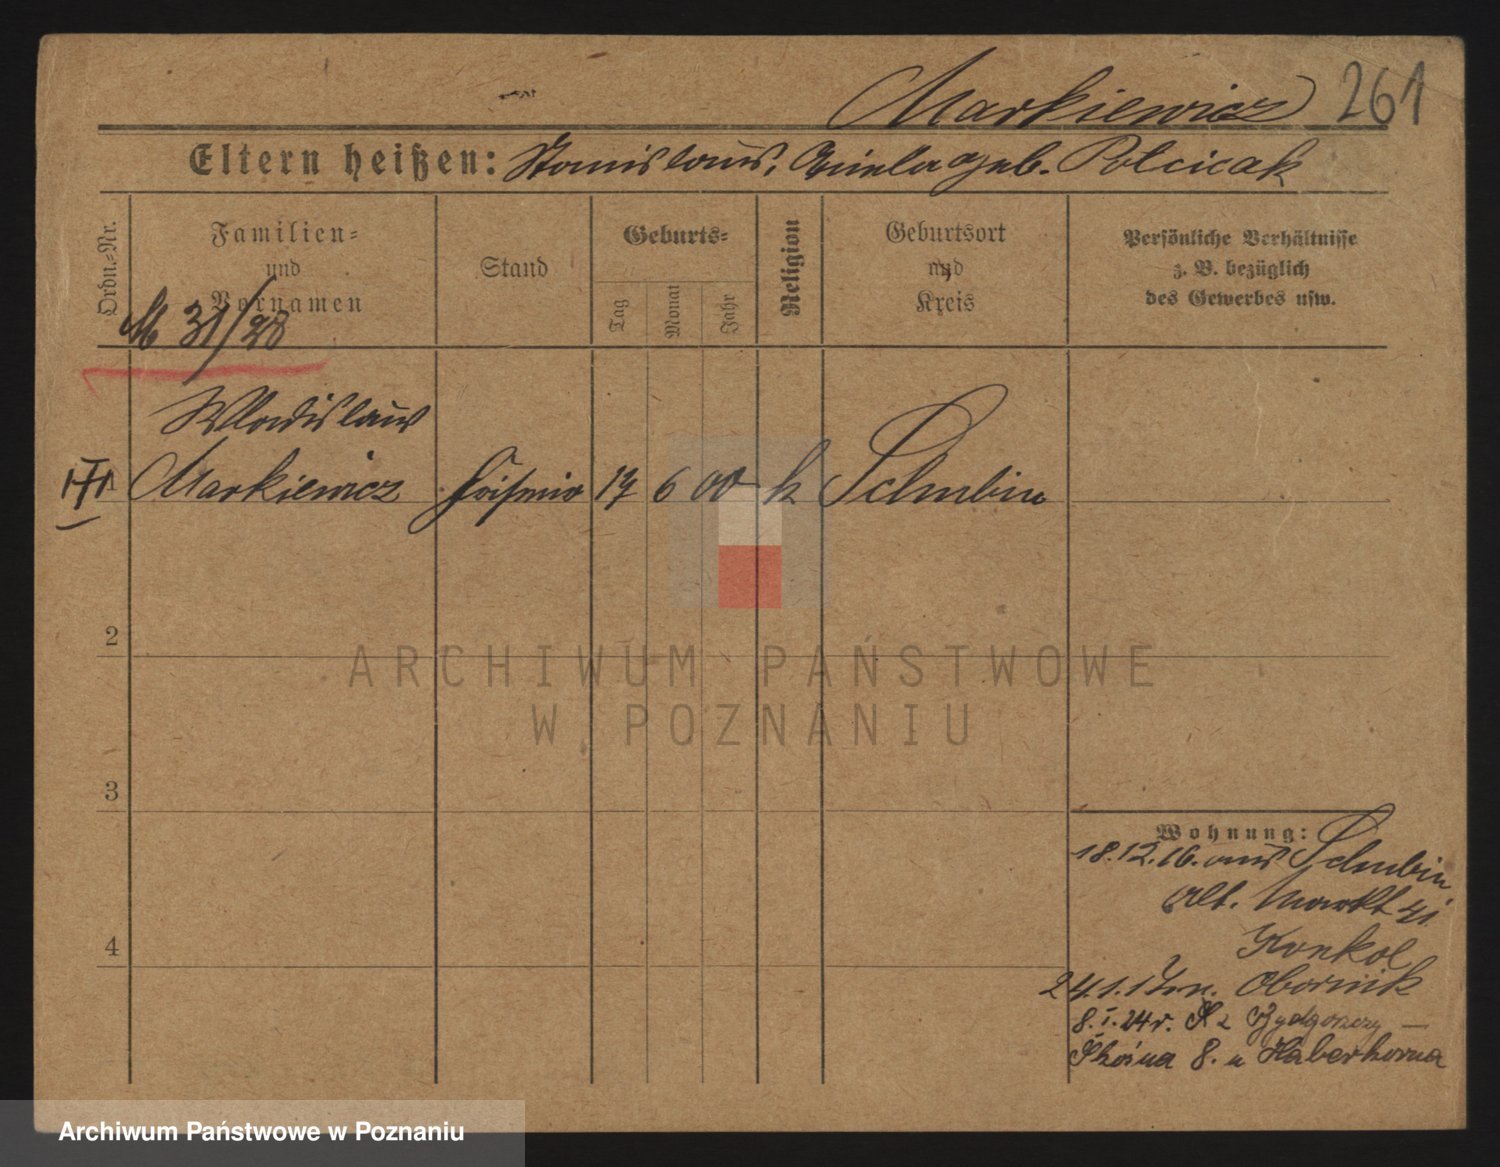 Markiewicz 261
Eltern heißen: Stanislaus, geb. Polcicak
Ordn.-Nr.
Familien-
und
Vornamen
Stand
Geburts-
Tag
Monat
Jahr
Religion
Geburtsort
und
Kreis
Persönliche Verhältnisse
z. B. bezüglich
des Gewerbes usw.
M 31/28
Wladislaus
1 Markiewicz Friseur 17 6 00 k Schubin
2
ARCHIWUM PAŃSTWOWE
W POZNANIU
3
Wohnung:
18.12.16. aus Schubin
Alt. Markt 41
Konkol
24.1.17 n. Obornik
4
8.I.24 r. z Bydgoszczy —
8. u Haberkorna
Archiwum Państwowe w Poznaniu